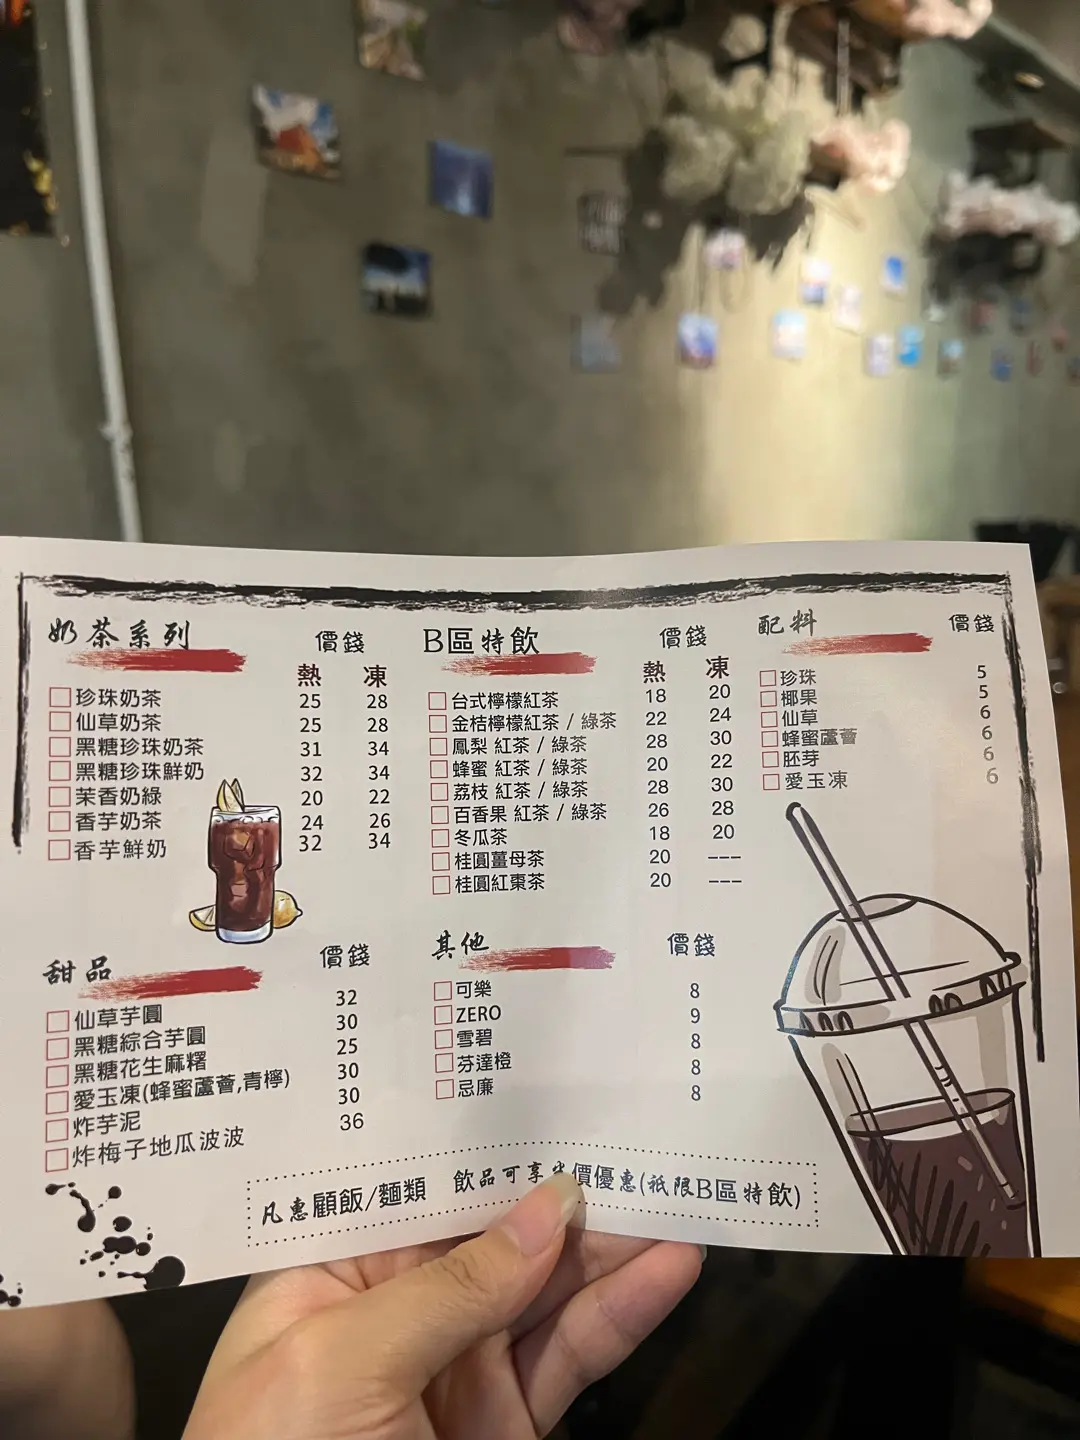 奶茶系列 價錢
熱 凍
珍珠奶茶 25 28
仙草奶茶 25 28
黑糖珍珠奶茶 31 34
黑糖珍珠鮮奶 32 34
茉香奶綠 20 22
香芋奶茶 24 26
香芋鮮奶 32 34
B區特飲 價錢
熱 凍
台式檸檬紅茶 18 20
金桔檸檬紅茶 / 綠茶 22 24
鳳梨 紅茶 / 綠茶 28 30
蜂蜜 紅茶 / 綠茶 20 22
荔枝 紅茶 / 綠茶 28 30
百香果 紅茶 / 綠茶 26 28
冬瓜茶 18 20
桂圓薑母茶 20 ---
桂圓紅棗茶 20 ---
配料 價錢
珍珠 5
椰果 5
仙草 6
蜂蜜蘆薈 6
胚芽 6
愛玉凍 6
甜品 價錢
仙草芋圓 32
黑糖綜合芋圓 30
黑糖花生麻糬 25
愛玉凍(蜂蜜蘆薈,青檸) 30
炸芋泥 30
炸梅子地瓜波波 36
其他 價錢
可樂 8
ZERO 9
雪碧 8
芬達橙 8
忌廉 8
凡惠顧飯/麵類 飲品可享 價優惠(祇限B區特飲)